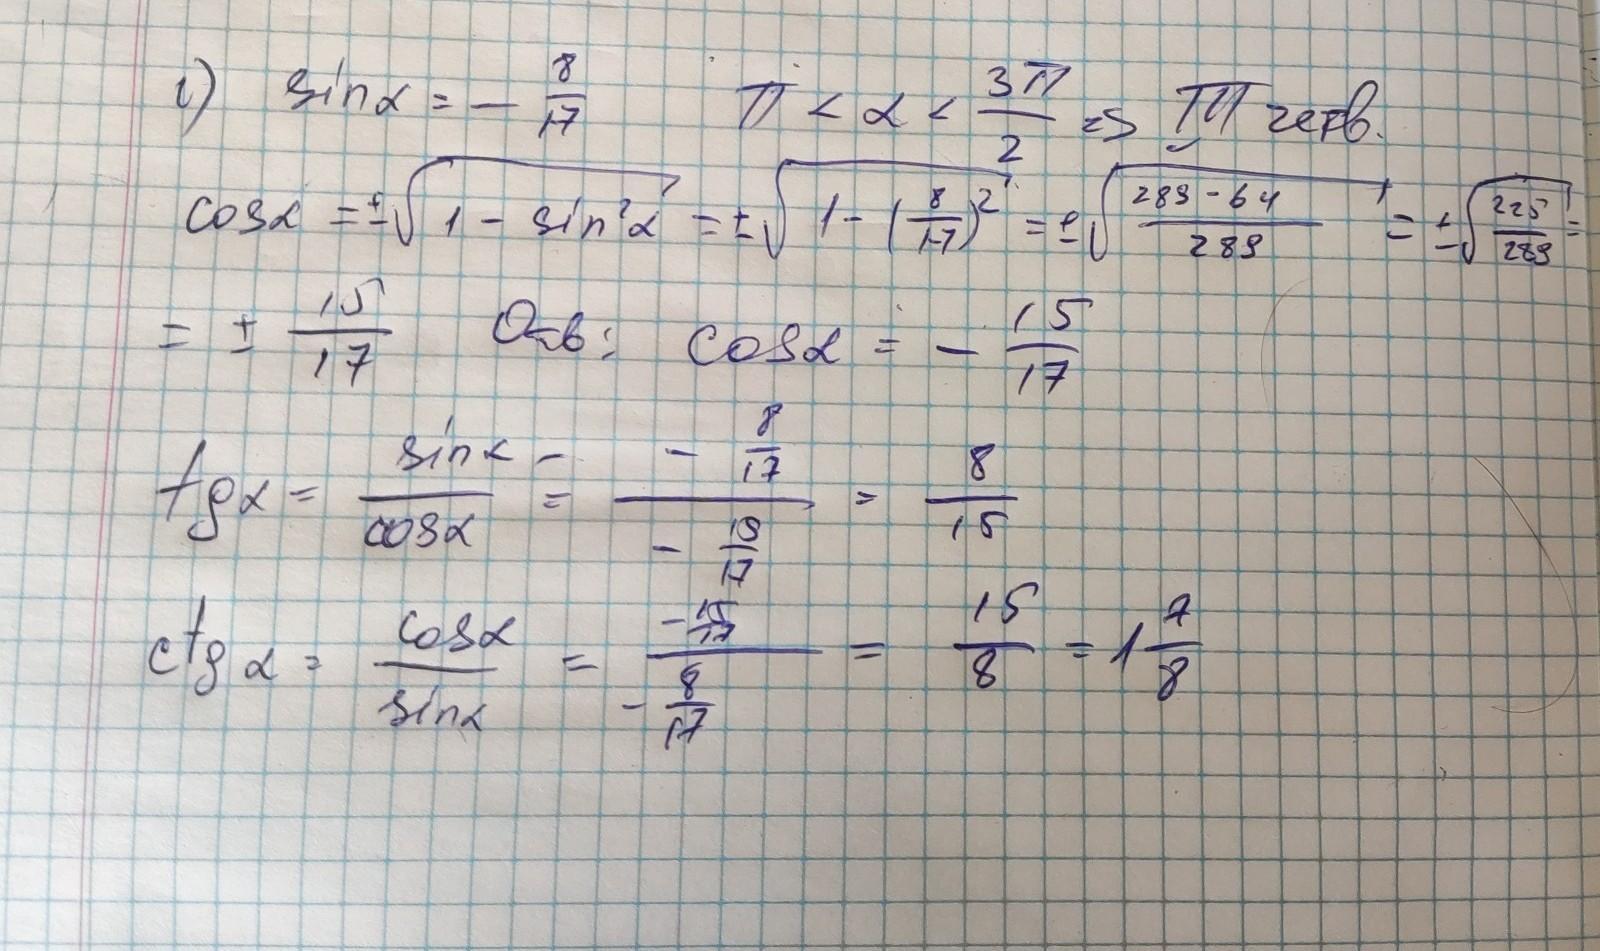 1) sinα = - 8/17 π < α < 3π/2 => III четв.
cosα = ±√(1 - sin²α) = ±√(1 - (8/17)²) = ±√((289 - 64)/289) = ±√(225/289) =
= ± 15/17 Отв: cosα = - 15/17
tgα = sinα/cosα = (- 8/17)/(- 15/17) = 8/15
ctgα = cosα/sinα = (- 15/17)/(- 8/17) = 15/8 = 1 7/8